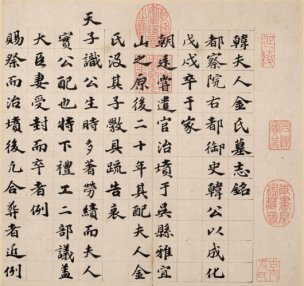 韓夫人金氏墓志銘
都察院右都御史韓公以成化
戊戌卒于家
朝廷遣官治墳于吳縣雅宜
山之原後二十年其配夫人金
氏没其子敷具疏告哀
天子識公生時多著勞績而夫人
實公配也特下禮工二部議蓋
大臣妻受封而卒者例
賜祭而治墳後凡合葬者近例